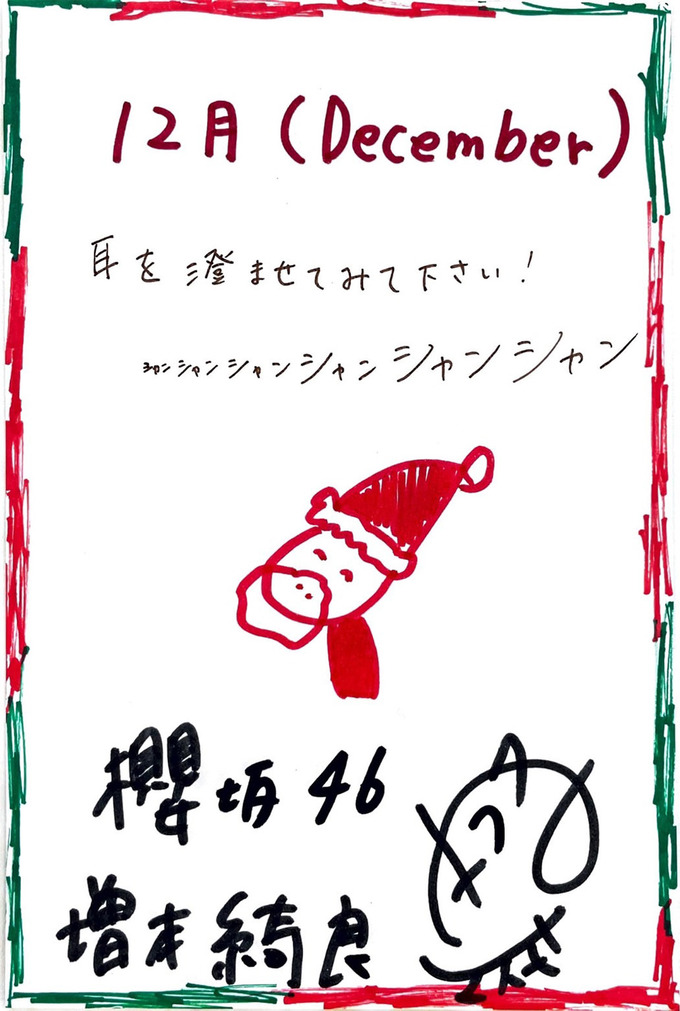 12月(December)
耳を澄ませてみて下さい!
シャンシャンシャンシャンシャンシャン
櫻坂46
増本綺良